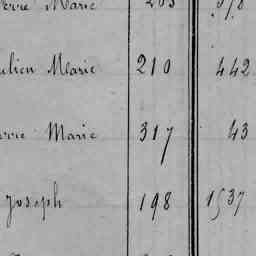 Marie
ulien Marie 210 442
Marie 317 43
Joseph 198 1537